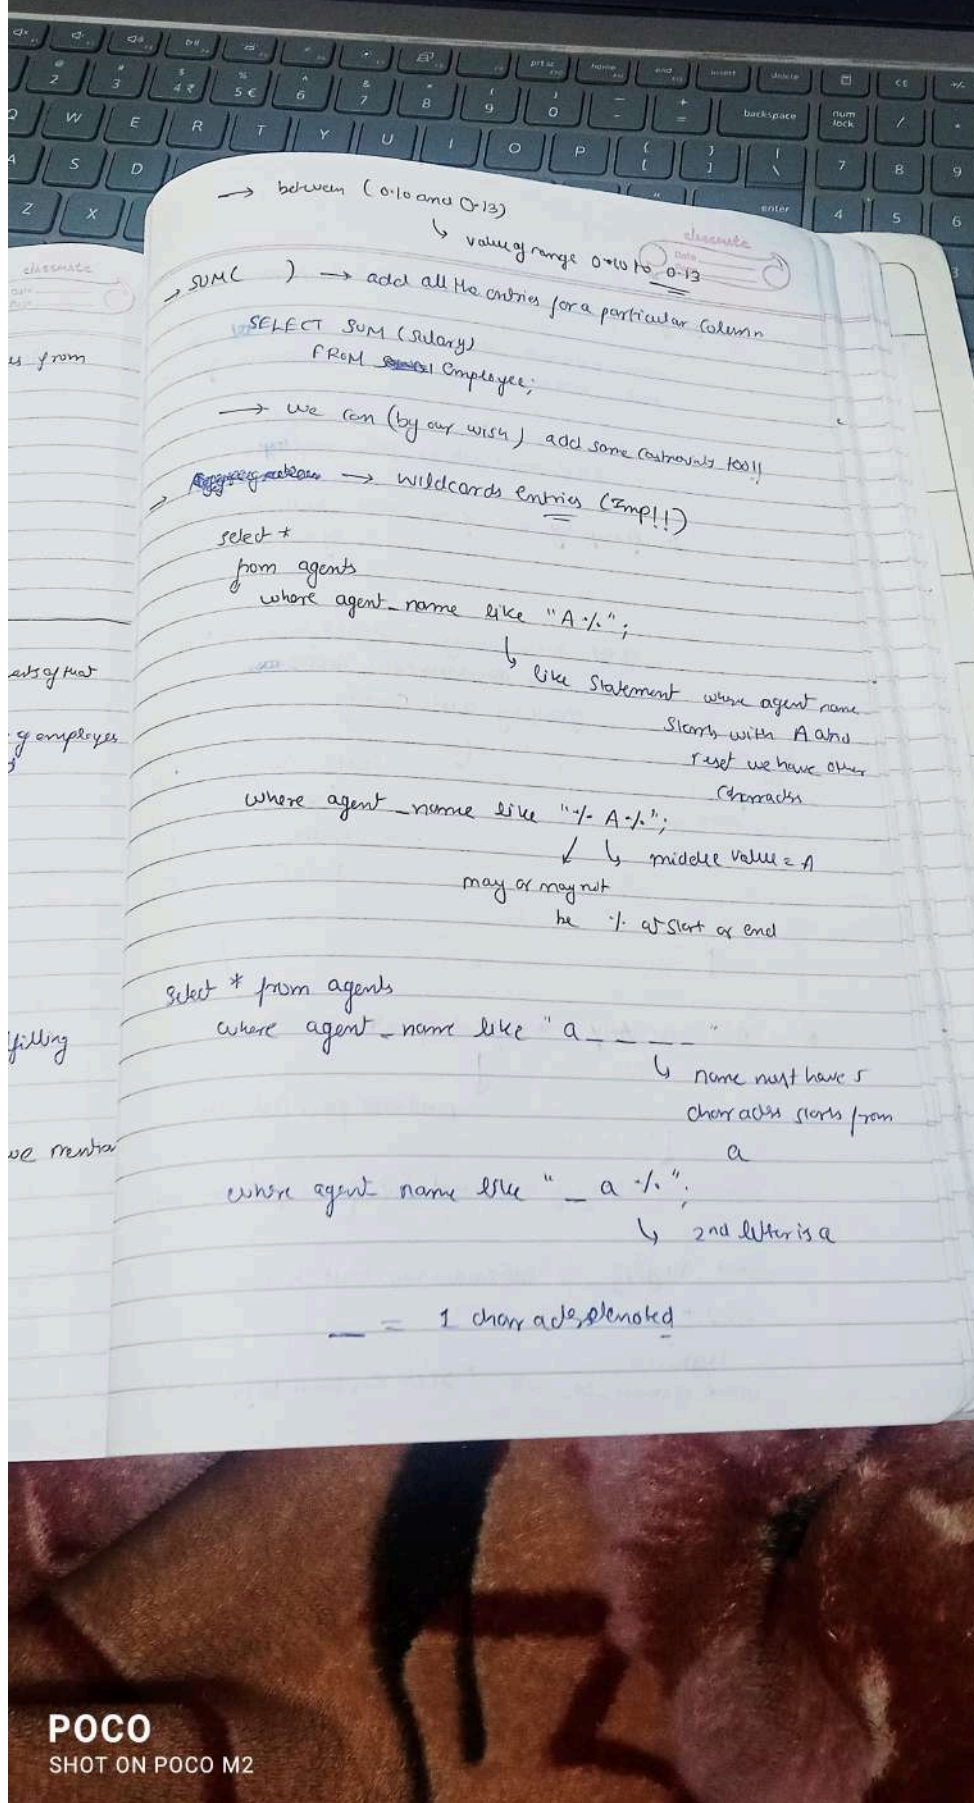 → between (0.10 and 0.13)
↳ value of range 0.10 to 0.13
classmate
Date
→ SUM( ) → add all the entries for a particular column
SELECT SUM (Salary)
FROM Employee;
→ we can (by our wish) add some too!!
→ wildcards entries (Imp!!)
select *
from agents
where agent_name like "A%";
↳ like Statement where agent name
Starts with A and
reset we have other
where agent_name like "% A%";
↳ middle value = A
may or may not
be % at start or end
Select * from agents
where agent_name like "a_ _ _ _"
↳ name must have 5
starts from
a
where agent_name like "_ a %";
↳ 2nd letter is a
_ = 1 denoted
classmate
s from
ents of that
of employes
filling
we mention
POCO
SHOT ON POCO M2
2
3
4 ₹
5 €
6
7
8
9
0
backspace
num lock
W E R T Y U I O P
7 8 9
S D
enter
4 5 6
Z X